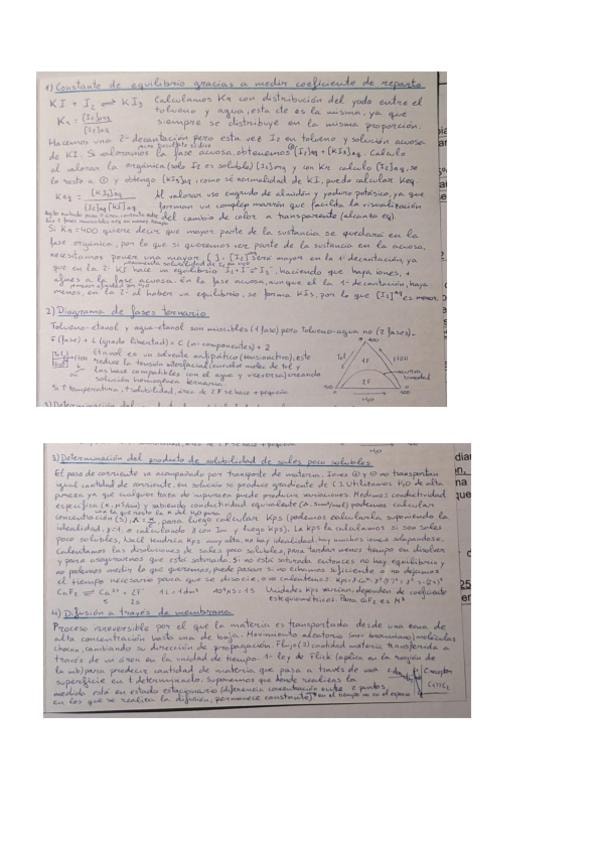 1) Constante de equilibrio gracias a medir coeficiente de reparto
KI + I2 ⇌ KI3 Calculamos Kr con distribución del yodo entre el
Kr = [I2]org / [I2]aq tolueno y agua, esta cte es la misma, ya que
siempre se distribuye en la misma proporción.
Hacemos una 2ª decantación pero esta vez I2 en tolueno y solución acuosa
de KI. Si valoramos la fase acuosa, obtenemos [I2]aq + [KI3]aq. Calculo
al valorar la orgánica (solo I2 es soluble) [I2]org y con Kr calculo [I2]aq, se
lo resto a ① y obtengo [KI3]aq, como sé normalidad de KI, puedo calcular Keq.
Keq = [KI3]aq / [I2]aq[KI]aq Al valorar uso engrudo de almidón y yoduro potásico, ya que
forman un complejo marrón que facilita la visualización
del cambio de color a transparente (alcanza eq).
Si Kr = 400 quiere decir que mayor parte de la sustancia se quedará en la
fase orgánica, por lo que si queremos ver parte de la sustancia en la acuosa,
necesitamos poner una mayor [ ]. [I2] será mayor en la 1ª decantación, ya
que en la 2ª KI hace un equilibrio I2 + I⁻ ⇌ I3⁻, haciendo que haya iones, +
afines a la fase acuosa. En la fase acuosa, aunque el la 1ª decantación, haya
menos, en la 2ª al haber un equilibrio, se forma KI3, por lo que [I2]aq es menor.
2) Diagrama de fases ternario
Tolueno-etanol y agua-etanol son miscibles (1 fase) pero tolueno-agua no (2 fases).
F (fase) + L (grado libertad) = C (nº componentes) + 2
Etanol es un solvente antipático (tensioactivo), este
reduce la tensión interfacial
las hace compatibles con el agua y viceversa) creando
solución homogénea ternaria.
Si ↑ temperatura, ↑ solubilidad, área de 2F se hace + pequeña
Tol
1F
2F
H2O
3) Determinación del producto de solubilidad de sales poco solubles
El paso de corriente va acompañado por transporte de materia. Iones ⊕ y ⊖ no transportan
igual cantidad de corriente, en solución se produce gradiente de [ ]. Utilizamos H2O de alta
pureza ya que cualquier traza de impureza puede producir variaciones. Medimos conductividad
específica (κ, μS/cm) y sabiendo conductividad equivalente podemos calcular
concentración (S), para luego calcular Kps (podemos calcularla suponiendo la
idealidad, γ=1, o calculando γ con Im y luego Kps). La Kps la calculamos si son sales
poco solubles, NaCl tendría Kps muy alta, no hay idealidad, hay muchos iones solapándose.
Calentamos las disoluciones de sales poco solubles, para tardar menos tiempo en disolver
y para asegurarnos que está saturada. Si no está saturada entonces no hay equilibrio y
no podemos medir lo que queremos, puede pasar si no echamos suficiente o no dejamos
el tiempo necesario para que se disocie, o no calentamos.
CaF2 ⇌ Ca²⁺ + 2F⁻ 1L = 1dm³ Unidades Kps varían, dependen de coeficiente
s 2s estequiométricos. Para CaF2 es M³
4) Difusión a través de membrana
Proceso irreversible por el que la materia es transportada desde una zona de
alta concentración hasta una de baja. Movimiento aleatorio (mov browniano) moléculas
chocan, cambiando su dirección de propagación. Flujo (J) cantidad materia transferida a
través de un área en la unidad de tiempo. 1ª ley de Flick (aplica en la región de
la mb) para predecir cantidad de materia que pasa a través de una
superficie en t determinado. Suponemos que donde realizas la
medida está en estado estacionario (diferencia concentración entre 2 puntos,
en los que se realiza la difusión, permanece constante) en el tiempo no en el espacio